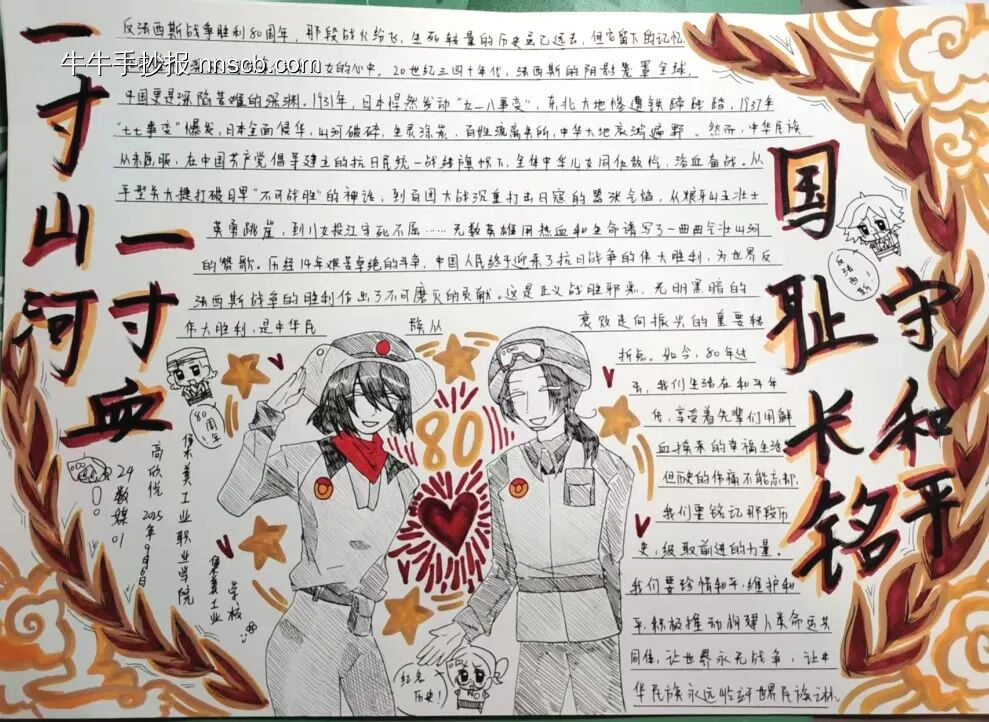 一寸山河
一寸血
牛牛手抄报 nnscb.com
反法西斯战争胜利80周年，那段战火纷飞，生死较量的历史虽已远去，但它留下的记忆
女的心中。20世纪三四十年代，法西斯的阴影笼罩全球，
中国更是深陷苦难的深渊。1931年，日本悍然发动“九一八事变”，东北大地惨遭铁蹄践踏，1937年
“七七事变”爆发，日本全面侵华，山河破碎，生灵涂炭，百姓流离失所，中华大地哀鸿遍野。然而，中华民族
从未屈服，在中国共产党倡导建立的抗日民族统一战线旗帜下，全体中华儿女同仇敌忾，浴血奋战。从
平型关大捷打破日军“不可战胜”的神话，到百团大战沉重打击日寇的嚣张气焰，从狼牙山五壮士
英勇跳崖，到八女投江宁死不屈……无数英雄用热血和生命谱写了一曲曲气壮山河
的赞歌。历经14年艰苦卓绝的斗争，中国人民终于迎来了抗日战争的伟大胜利，为世界反
法西斯战争的胜利作出了不可磨灭的贡献。这是正义战胜邪恶，光明黑暗的
伟大胜利，是中华民 族从 衰败走向振兴的重要转
折点。如今，80年过
去，我们生活在和平年
代，享受着先辈们用鲜
血换来的幸福生活
但历史的伤痛不能忘却，
我们要铭记那段历
史，汲取前进的力量。
我们要珍惜和平，维护和
平，积极推动构建人类命运共
同体，让世界永无战争，让中
华民族永远屹立于世界民族之林
国耻长铭
守和平
反法西斯！
80周年！
80
红色历史！
美工业职业学院
高欣悦 2025年9月6日
24数媒01
美工业
学校